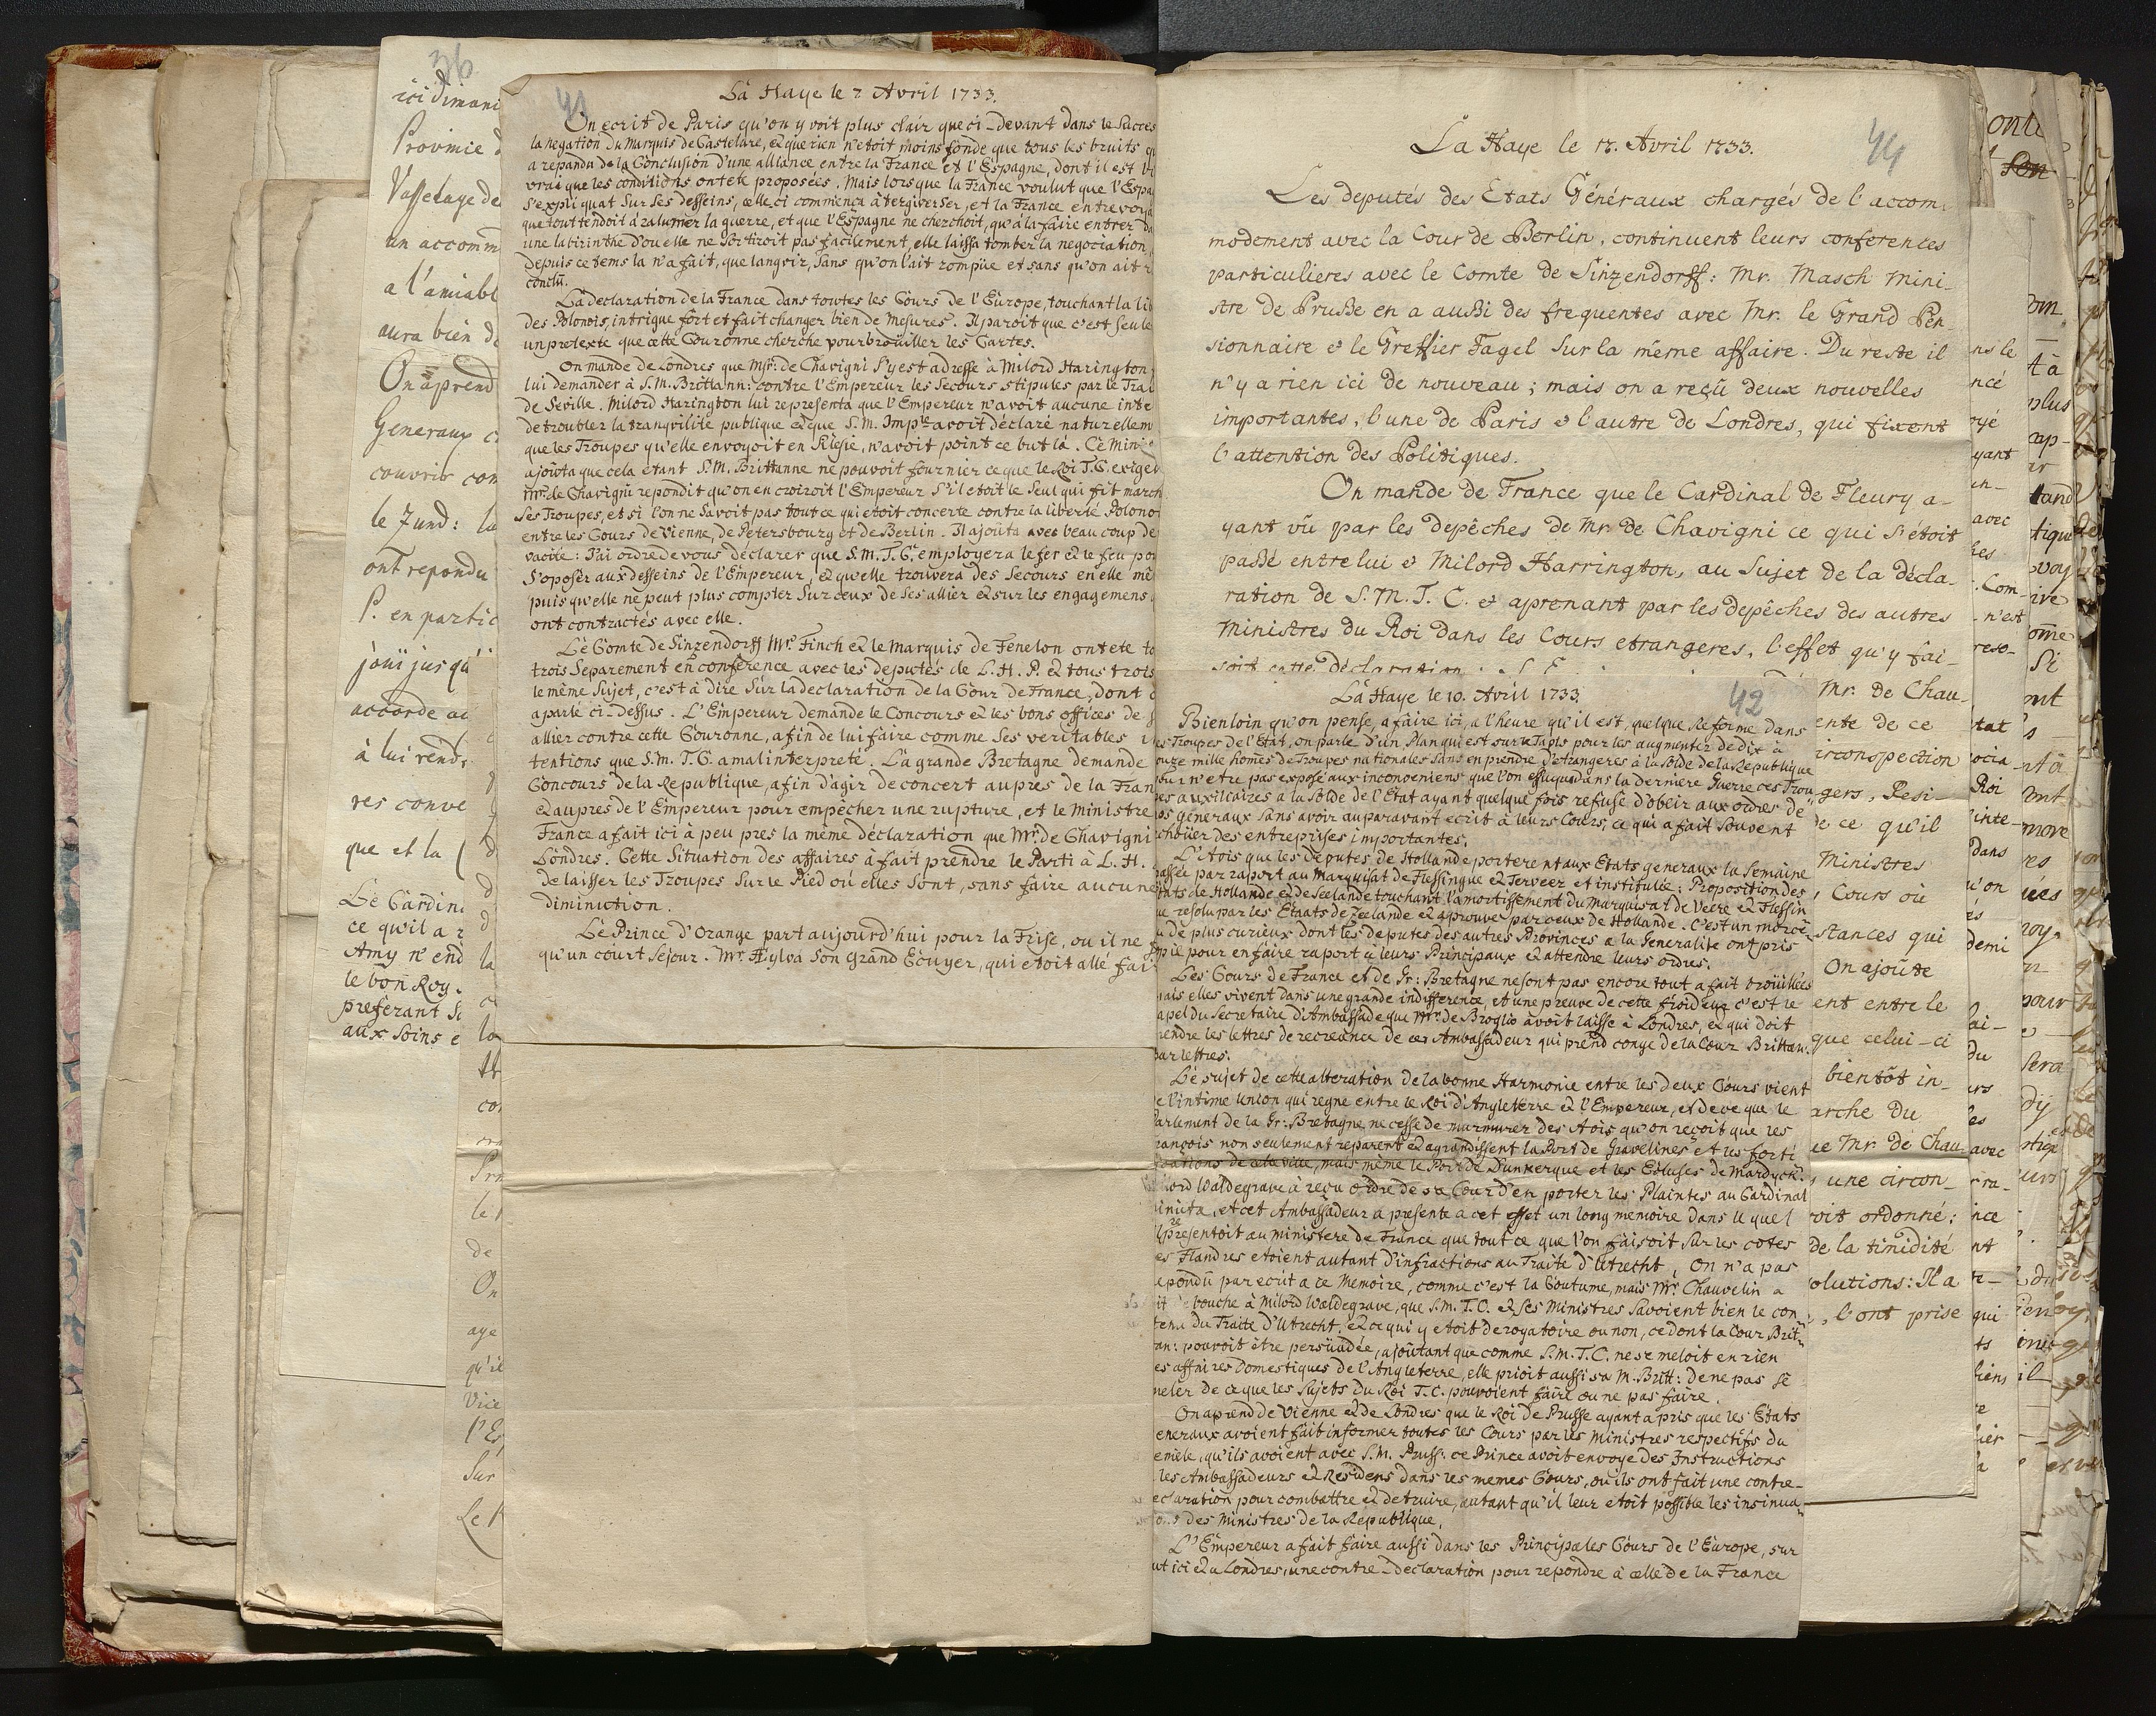 36
ici dimanc
Provincie d
Vasselage de
un accomm
a l'amiabl
aura bien de
On aprend
Generaux c
couvrir con
le 7 und: la
ont repondu
P. en partic
joüi jusqu'
accorde ai
à lui rendr
res conve
que et la
Le Cardin
ce qu'il a
Amy n'end
le bon Roy.
preferant S
aux soins e
la
co
Prn
le
de
On
aye
qu'il
Vice
l'Es
Sur
Le P
41
La Haye le 7 Avril 1733.
On ecrit de Paris qu'on y voit plus clair que ci-devant dans le Succes
la negation du Marquis de Castelare, & que rien n'etoit moins fonde que tous les bruits q
a repandu de la Conclusion d'une alliance entre la France et l'Espagne, dont il est bi
vrai que les conditions ont ete proposées. Mais lorsque la France voulut que l'Espa
s'expliquat Sur Ses desseins, celle ci commença à tergiverser, et la France entrevoya
que tout tendoit à ralumer la guerre, et que l'Espagne ne cherchoit, qu'à la faire entrer da
une labirinthe d'ou elle ne Sortiroit pas facilement, elle laissa tomber la negociation,
depuis ce tems la n'a fait, que languir, Sans qu'on l'ait rompüe et sans qu'on ait r
conclû.
La declaration de la France dans toutes les Cours de l'Europe, touchant la lib
des Polonois, intrigue fort et fait changer bien de Mesures. Il paroit que c'est Seule
un pretexte que cette Couronne cherche pour broüiller les Cartes.
On mande de Londres que Msr: de Chavigni S'y est adresse à Milord Harington
lui demander à S.M. Brittann: contre l'Empereur les Secours stipules par le Trai
de Seville. Milord Harington lui representa que l'Empereur n'avoit aucune inte
de troubler la tranquilité publique & que S.M. Imple avoit déclaré naturellem
que les Troupes qu'elle envoyoit en Silesie, n'avoit point ce but là. Ce Mini
ajoûta que cela étant S.M. Brittanne ne pouvoit fournier ce que le Roi T.C. exigea
Mr. de Chavigni repondit qu'on en croiroit l'Empereur S'il etoit le Seul qui fit march
Ses Troupes, et si l'on ne Savoit pas tout ce qui etoit concerte contre la liberté Polono
entre les Cours de Vienne, de Petersbourg et de Berlin. Il ajoûta avec beaucoup de
vacite: J'ai ordre de vous déclarer que S.M.T.C. employera le fer & le feu pou
S'oposer aux desseins de l'Empereur, & qu'elle trouvera des Secours en elle mê
puis qu'elle ne peut plus compter Sur ceux de Ses allier & sur les engagemens q
ont contractés avec elle.
Le Comte de Sinzendorff Mr. Finch & le Marquis de Fenelon ont ete to
trois Separement en conference avec les deputés de L.H.P. & tous trois
le même Sujet, c'est à dire Sur la declaration de la Cour de France, dont o
a parle ci-dessus. L'Empereur demande le Concours & les bons offices de S
allier contre cette Couronne, afin de lui faire comme Ses veritables in
tentions que S.M.T.C. a mal interprete. La grande Bretagne demande
Concours de la Republique, afin d'agir de concert aupres de la Fran
& aupres de l'Empereur pour empêcher une rupture, et le Ministre
France a fait ici à peu pres la même déclaration que Mr. de Chavigni
Londres. Cette Situation des affaires à fait prendre le Parti à L.H.
de laisser les Troupes Sur le Pied où elles Sont, sans faire aucune
diminution.
Le Prince d'Orange part aujourd'hui pour la Frise, ou il ne f
qu'un court Sejour. Mr. Hylva Son Grand Ecuyer, qui etoit allé fai
44
La Haye le 17. Avril 1733.
Les deputés des Etats Généraux chargés de l'accom-
modement avec la Cour de Berlin, continuent leurs conferences
particulieres avec le Comte de Sinzendorff: Mr. Masch Mini-
stre de Prusse en a aussi des frequentes avec Mr. le Grand Pen-
sionnaire & le Greffier Fagel Sur la même affaire. Du reste il
n'y a rien ici de nouveau; mais on a reçû deux nouvelles
importantes, l'une de Paris & l'autre de Londres, qui fixent
l'attention des Politiques.
On mande de France que le Cardinal de Fleury a-
yant vû par les depêches de Mr. de Chavigni ce qui s'étoit
passé entre lui & Milord Harrington, au Sujet de la décla-
ration de S.M.T.C. & aprenant par les depêches des autres
Ministres du Roi dans les Cours etrangeres, l'effet qu'y fai-
soit cette déclaration
Mr. de Chau-
ente de ce
irconspection
gers, Resi-
de ce qu'il
Ministres
Cours où
stances qui
On ajoûte
ent entre le
que celui-ci
bientôt in-
arche du
ue Mr. de Chau-
une circon-
oit ordonné:
de la timidité
olutions: Il a
l'ont prise
42
La Haye le 10. Avril 1733.
Bien loin qu'on pense, a faire ici, a l'heure qu'il est, quelque Reforme dans
es Troupes de l'Etat, on parle d'un Plan qui est sur le Tapis pour les augmenter de dix à
ouze mille homes de Troupes nationales Sans en prendre d'etrangeres à la Solde de la Republique
our n'etre pas exposé aux inconveniens que l'on essuya dans la derniere Guerre ces Trou
es auxiliaires a la Solde de l'Etat ayant quelque fois refusé d'obeir aux ordres de
os généraux Sans avoir auparavant ecrit à leurs Cours, ce qui a fait Souvent
choüer des entreprises importantes.
L'Avis que les deputes de Hollande porterent aux Etats generaux la Semaine
assée par raport au Marquisat de Flessingue & Terveer et institulée: Proposition des
tats de Hollande & de Seelande touchant l'amortissement du Marquisat de Veere & Flessin
ue resolu par les Etaats de Zeelande & aprouvé par ceux de Hollande. C'est un morce
u de plus curieux dont les deputes des autres Provinces a la Generalite ont pris
opie pour en faire raport à leurs Principaux & attendre leurs ordres.
Les Cours de France et de Gr: Bretagne ne sont pas encore tout a fait broüillées
mais elles vivent dans une grande indifference, et une preuve de cette froideur c'est le
apel du Secretaire d'Ambassade que Mr. de Broglio avoit laisse à Londres, & qui doit
rendre les lettres de recreance de cet Ambassadeur qui prend conge de la Cour Brittan.
par lettres.
Le sujet de cette alteration de la bonne Harmonie entre les deux Cours vient
e l'intime Union qui regne entre le Roi d'Angleterre & l'Empereur, et de ce que le
arlement de la Gr: Bretagne ne cesse de murmurer des Avis qu'on reçoit que les
rançois non seulement reparent & agrandissent la Port de Gravelines et les forti
fications de cette ville, mais même le Port de Dunkerque et les Ecluses de Mardyck.
ilord Waldegrave à reçu Ordre de sa Cour d'en porter les Plaintes au Cardinal
inistre, et cet Ambassadeur a presente a cet effet un long memoire dans le quel
l representoit au ministere de France que tout ce que l'on faisoit Sur les cotes
es Flandres etoient autant d'infractions au Traite d'Utrecht, On n'a pas
epondu par ecrit a ce Memoire, comme c'est la Coutume, mais Mr. Chauvelin a
it de bouche à Milord Waldegrave, que S.M.T.C. & Ses Ministres Savoient bien le con
tenu du Traite d'Utrecht, & ce qui y etoit derogatoire ou non, ce dont la Cour Brit
an: pouvoit être persüadée, ajoûtant que comme S.M.T.C. ne se meloit en rien
es affaires Domestiques de l'Angleterre, elle prioit aussi sa M. Britt: de ne pas se
meler de ce que les Sujets du Roi T.C. pouvoient faire ou ne pas faire.
On aprend de Vienne & de Londres que le Roi de Prusse ayant apris que les Etats
eneraux avoient fait informer toutes les Cours par les Ministres respectifs du
emele, qu'ils avoient avec S.M. Pruss: ce Prince avoit envoye des Instructions
les Ambassadeurs & Residens dans les memes Cours, ou ils ont fait une contre-
eclaration pour combattre & detruire, autant qu'il leur etoit possible les insinua
ons des Ministres de la Republique.
L'Empereur a fait faire aussi dans les Principales Cours de l'Europe, sur
ut ici & a Londres, une contre-declaration pour repondre à celle de la France